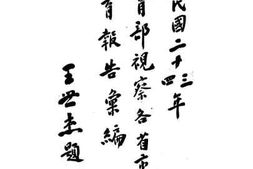 民國二十三四年
育部視察各省市
育報告彙編
王世杰題